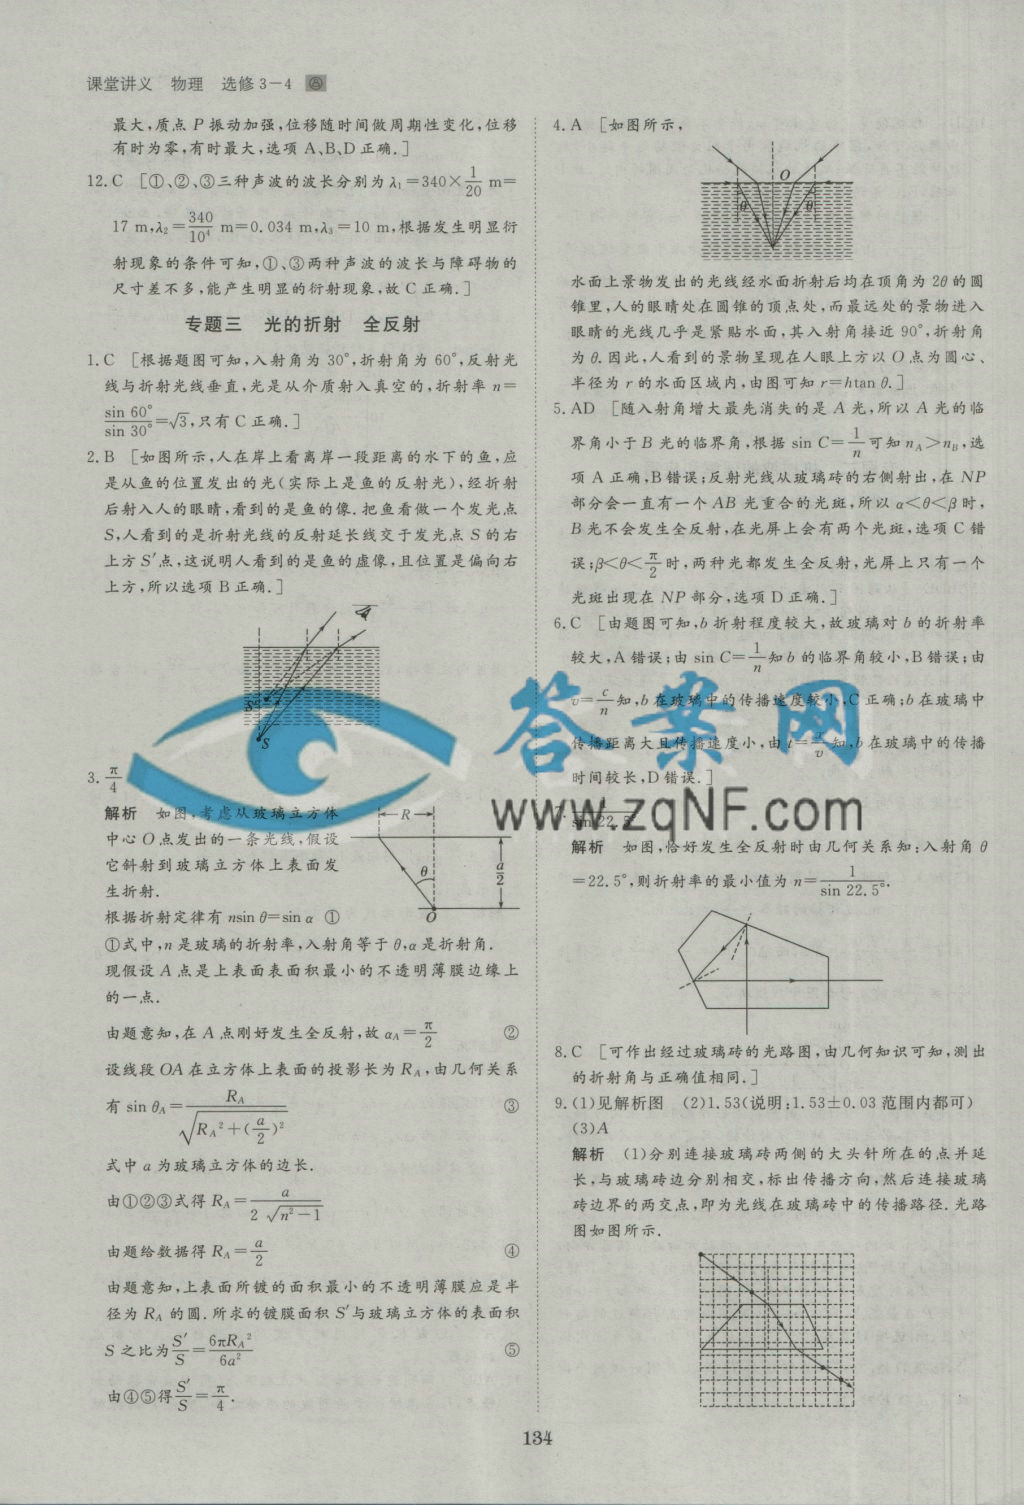 课堂讲义 物理 选修3-4
最大,质点 P 振动加强,位移随时间做周期性变化,位移
有时为零,有时最大,选项 A、B、D 正确.]
12.C [①、②、③三种声波的波长分别为 λ₁=340×1/20 m=
17 m,λ₂=340/10⁴ m=0.034 m,λ₃=10 m,根据发生明显衍
射现象的条件可知,①、③两种声波的波长与障碍物的
尺寸差不多,能产生明显的衍射现象,故 C 正确.]
专题三 光的折射 全反射
1.C [根据题图可知,入射角为 30°,折射角为 60°,反射光
线与折射光线垂直,光是从介质射入真空的,折射率 n=
sin 60°/sin 30°=√3,只有 C 正确.]
2.B [如图所示,人在岸上看离岸一段距离的水下的鱼,应
是从鱼的位置发出的光(实际上是鱼的反射光),经折射
后射入人的眼睛,看到的是鱼的像.把鱼看做一个发光点
S,人看到的是折射光线的反射延长线交于发光点 S 的右
上方 S′点,这说明人看到的是鱼的虚像,且位置是偏向右
上方,所以选项 B 正确.]
S′
S
3. π/4
解析 如图,考虑从玻璃立方体
中心 O 点发出的一条光线,假设
它斜射到玻璃立方体上表面发
生折射.
R
θ
a/2
O
根据折射定律有 nsin θ=sin α ①
①式中,n 是玻璃的折射率,入射角等于 θ,α 是折射角.
现假设 A 点是上表面表面积最小的不透明薄膜边缘上
的一点.
由题意知,在 A 点刚好发生全反射,故 αA=π/2 ②
设线段 OA 在立方体上表面的投影长为 RA,由几何关系
有 sin θA=RA/√(RA²+(a/2)²) ③
式中 a 为玻璃立方体的边长.
由①②③式得 RA=a/(2√(n²-1))
由题给数据得 RA=a/2 ④
由题意知,上表面所镀的面积最小的不透明薄膜应是半
径为 RA 的圆.所求的镀膜面积 S′与玻璃立方体的表面积
S 之比为 S′/S=6πRA²/6a² ⑤
由④⑤得 S′/S=π/4.
4.A [如图所示,
O
θ θ
水面上景物发出的光线经水面折射后均在顶角为 2θ 的圆
锥里,人的眼睛处在圆锥的顶点处,而最远处的景物进入
眼睛的光线几乎是紧贴水面,其入射角接近 90°,折射角
为 θ.因此,人看到的景物呈现在人眼上方以 O 点为圆心、
半径为 r 的水面区域内,由图可知 r=htan θ.]
5.AD [随入射角增大最先消失的是 A 光,所以 A 光的临
界角小于 B 光的临界角,根据 sin C=1/n 可知 nA>nB,选
项 A 正确,B 错误;反射光线从玻璃砖的右侧射出,在 NP
部分会一直有一个 AB 光重合的光斑,所以 α<θ<β 时,
B 光不会发生全反射,在光屏上会有两个光斑,选项 C 错
误;β<θ<π/2 时,两种光都发生全反射,光屏上只有一个
光斑出现在 NP 部分,选项 D 正确.]
6.C [由题图可知,b 折射程度较大,故玻璃对 b 的折射率
较大,A 错误;由 sin C=1/n 知 b 的临界角较小,B 错误;由
v=c/n 知,b 在玻璃中的传播速度较小,C 正确;b 在玻璃中
传播距离大且传播速度小,由 t=x/v 知,b 在玻璃中的传播
时间较长,D 错误.]
7. 1/sin 22.5°
解析 如图,恰好发生全反射时由几何关系知:入射角 θ
=22.5°,则折射率的最小值为 n=1/sin 22.5°.
8.C [可作出经过玻璃砖的光路图,由几何知识可知,测出
的折射角与正确值相同.]
9.(1)见解析图 (2)1.53(说明:1.53±0.03 范围内都可)
(3)A
解析 (1)分别连接玻璃砖两侧的大头针所在的点并延
长,与玻璃砖边分别相交,标出传播方向,然后连接玻璃
砖边界的两交点,即为光线在玻璃砖中的传播路径.光路
图如图所示.
答案网
www.zqNF.com
134